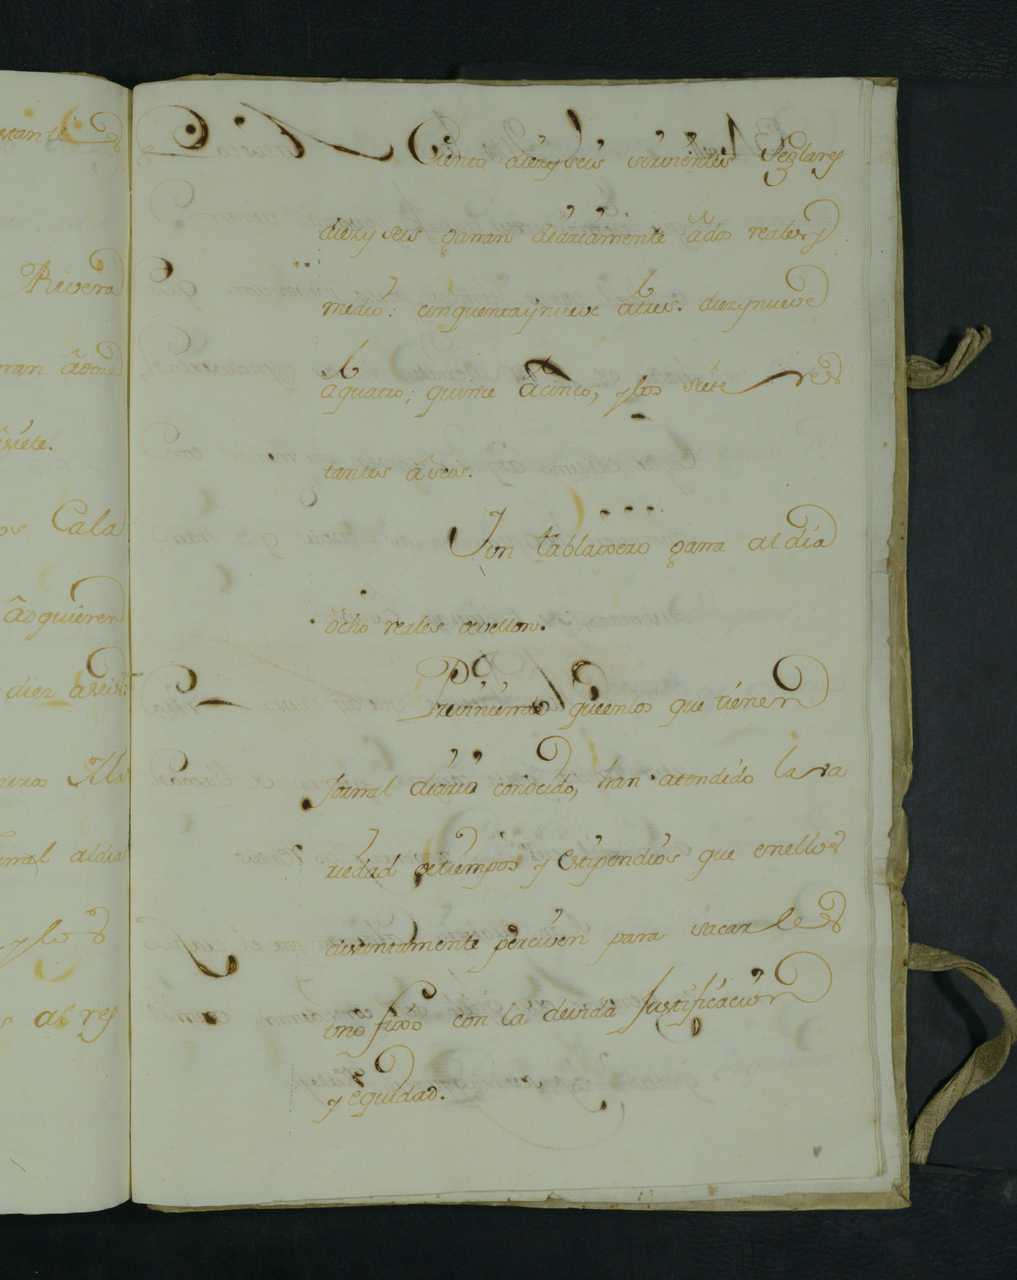 Ciento diezyseis sirvientes Seglares
diezyseis ganan diariamente âdos reales y
medio: cinquentaynueve atres. diezynueve
aquatro; quince acinco, y los siete res
tantes âseis.
Un tablagero gana al dia
ôcho reales devellon.
Previniendo queenlos que tienen
Jornal diario conocido, han atendido la va
riedad detiempos y Estipendios que enellos
distintamente perciven para sacarles
uno fixo con la devida Justificacion
y equidad.
Rivera
âsiete.
Cala
âdquieren
y los